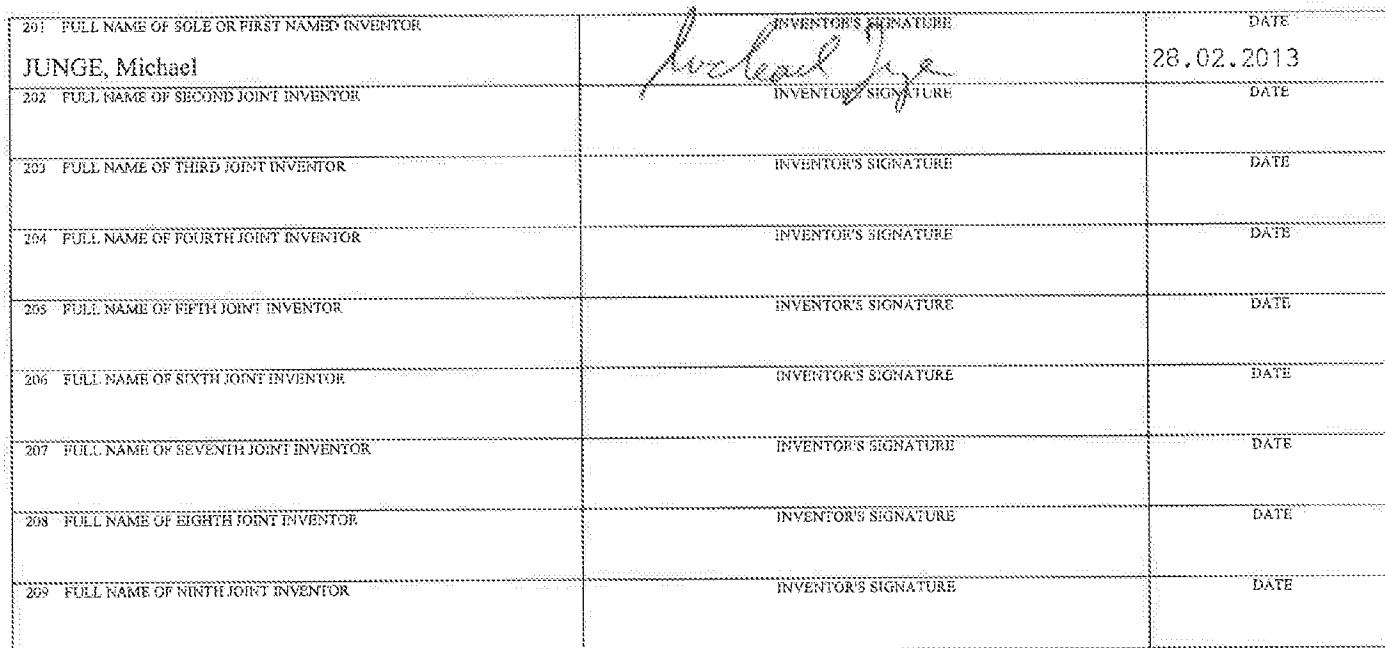 201 FULL NAME OF SOLE OR FIRST NAMED INVENTOR INVENTOR'S SIGNATURE DATE
JUNGE, Michael Michael 28.02.2013
202 FULL NAME OF SECOND JOINT INVENTOR INVENTOR'S SIGNATURE DATE
203 FULL NAME OF THIRD JOINT INVENTOR INVENTOR'S SIGNATURE DATE
204 FULL NAME OF FOURTH JOINT INVENTOR INVENTOR'S SIGNATURE DATE
205 FULL NAME OF FIFTH JOINT INVENTOR INVENTOR'S SIGNATURE DATE
206 FULL NAME OF SIXTH JOINT INVENTOR INVENTOR'S SIGNATURE DATE
207 FULL NAME OF SEVENTH JOINT INVENTOR INVENTOR'S SIGNATURE DATE
208 FULL NAME OF EIGHTH JOINT INVENTOR INVENTOR'S SIGNATURE DATE
209 FULL NAME OF NINTH JOINT INVENTOR INVENTOR'S SIGNATURE DATE